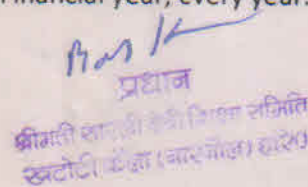 Financial year, every year.
प्रधान
श्रीमती शिक्षा समिति
खटोटी कलां (नारनौल) हरि०